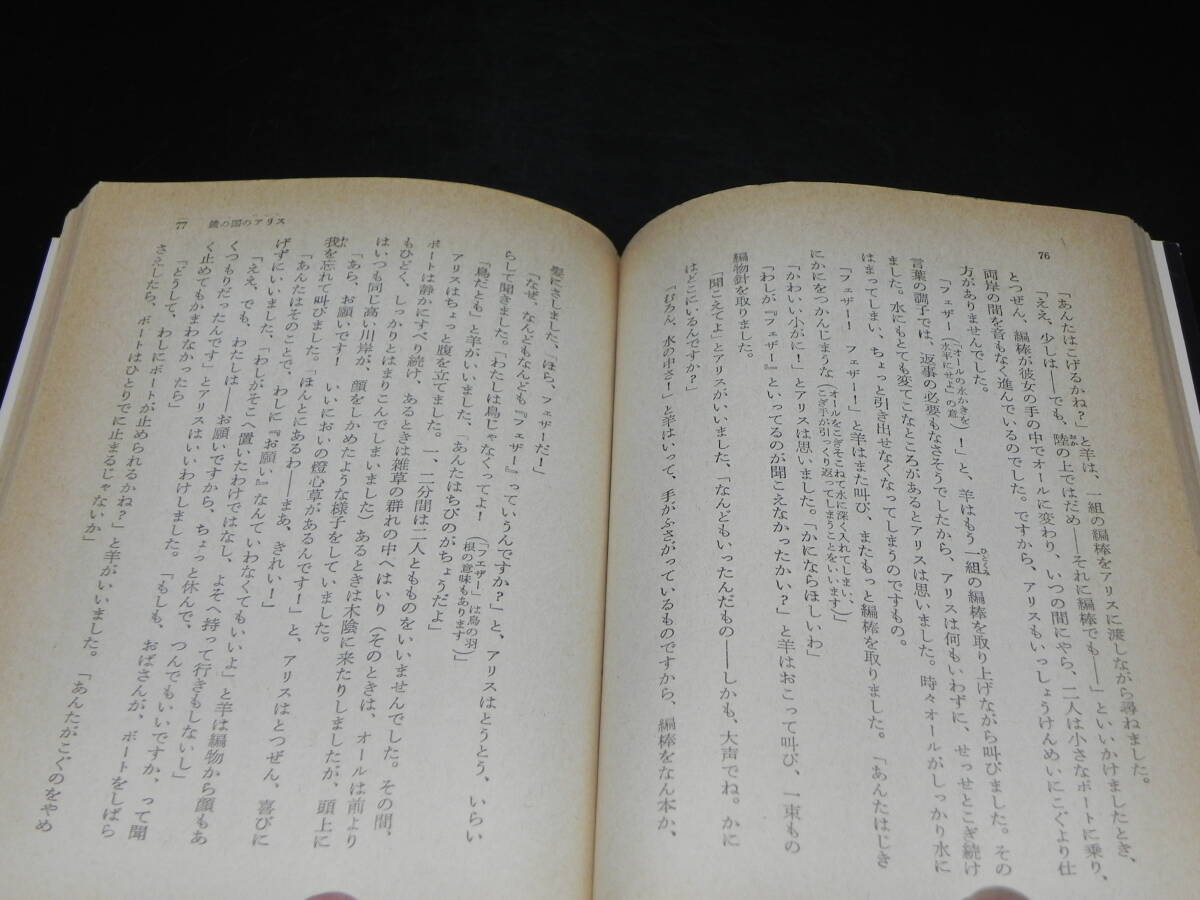 76
「あんたはこげるかね?」と羊は、一組の編棒をアリスに渡しながら尋ねました。
「ええ、少しは――でも、陸の上ではだめ――それに編棒でも――」といいかけましたとき、
とつぜん、編棒が彼女の手の中でオールに変わり、いつの間にやら、二人は小さなボートに乗り、
両岸の間を音もなく進んでいるのでした。ですから、アリスもいっしょうけんめいにこぐより仕
方がありませんでした。
「フェザー(オールの水かきを水平にせよ」の意)!」と、羊はもう一組の編棒を取り上げながら叫びました。その
言葉の調子では、返事の必要もなさそうでしたから、アリスは何もいわずに、せっせとこぎ続け
ました。水にもとても変てこなところがあるとアリスは思いました。時々オールがしっかり水に
はまってしまい、ちょっと引き出せなくなってしまうのですもの。
「フェザー! フェザー!」と羊はまた叫び、またもっと編棒を取りました。「あんたはじき
にかにをつかんじまうな(オールをこぎそこねて水に深く入れてしまい、こぎ手が引っくり返ってしまうことをいいます)」
「かわいい小がに!」とアリスは思いました。「かにならほしいわ」
「わしが『フェザー』といってるのが聞こえなかったかい?」と羊はおこって叫び、一束もの
編物針を取りました。
「聞こえてよ」とアリスがいいました、「なんどもいったんだもの――しかも、大声でね。かに
はどこにいるんですか?」
「むろん、水の中さ!」と羊はいって、手がふさがっているものですから、編棒をなん本か、
77 鏡の国のアリス
髪にさしました、「ほら、フェザーだ!」
「なぜ、なんどもなんども『フェザー』っていうんですか?」と、アリスはとうとう、いらい
らして聞きました。「わたしは鳥じゃなくってよ!(「フェザー」は鳥の羽根の意味もあります)」
「鳥だとも」と羊がいいました、「あんたはちびのがちょうだよ」
アリスはちょっと腹を立てました。一、二分間は二人ともものをいいませんでした。その間、
ボートは静かにすべり続け、あるときは雑草の群れの中へはいり(そのときは、オールは前より
もひどく、しっかりとはまりこんでしまいました)あるときは木陰に来たりしましたが、頭上に
はいつも同じ高い川岸が、顔をしかめたような様子をしていました。
「あら、お願いです! いいにおいの燈心草があるんです!」と、アリスはとつぜん、喜びに
我を忘れて叫びました。「ほんとにあるわ――まあ、きれい!」
「あんたはそのことで、わしに『お願い』なんていわなくてもいいよ」と羊は編物から顔もあ
げずにいいました、「わしがそこへ置いたわけではなし、よそへ持って行きもしないし」
「ええ、でも、わたしは――お願いですから、ちょっと休んで、つんでもいいですか、って聞
くつもりだったんです」とアリスはいいわけしました。「もしも、おばさんが、ボートをしばら
く止めてもかまわなかったら」
「どうして、わしにボートが止められるかね?」と羊がいいました。「あんたがこぐのをやめ
さえしたら、ボートはひとりでに止まるじゃないか」